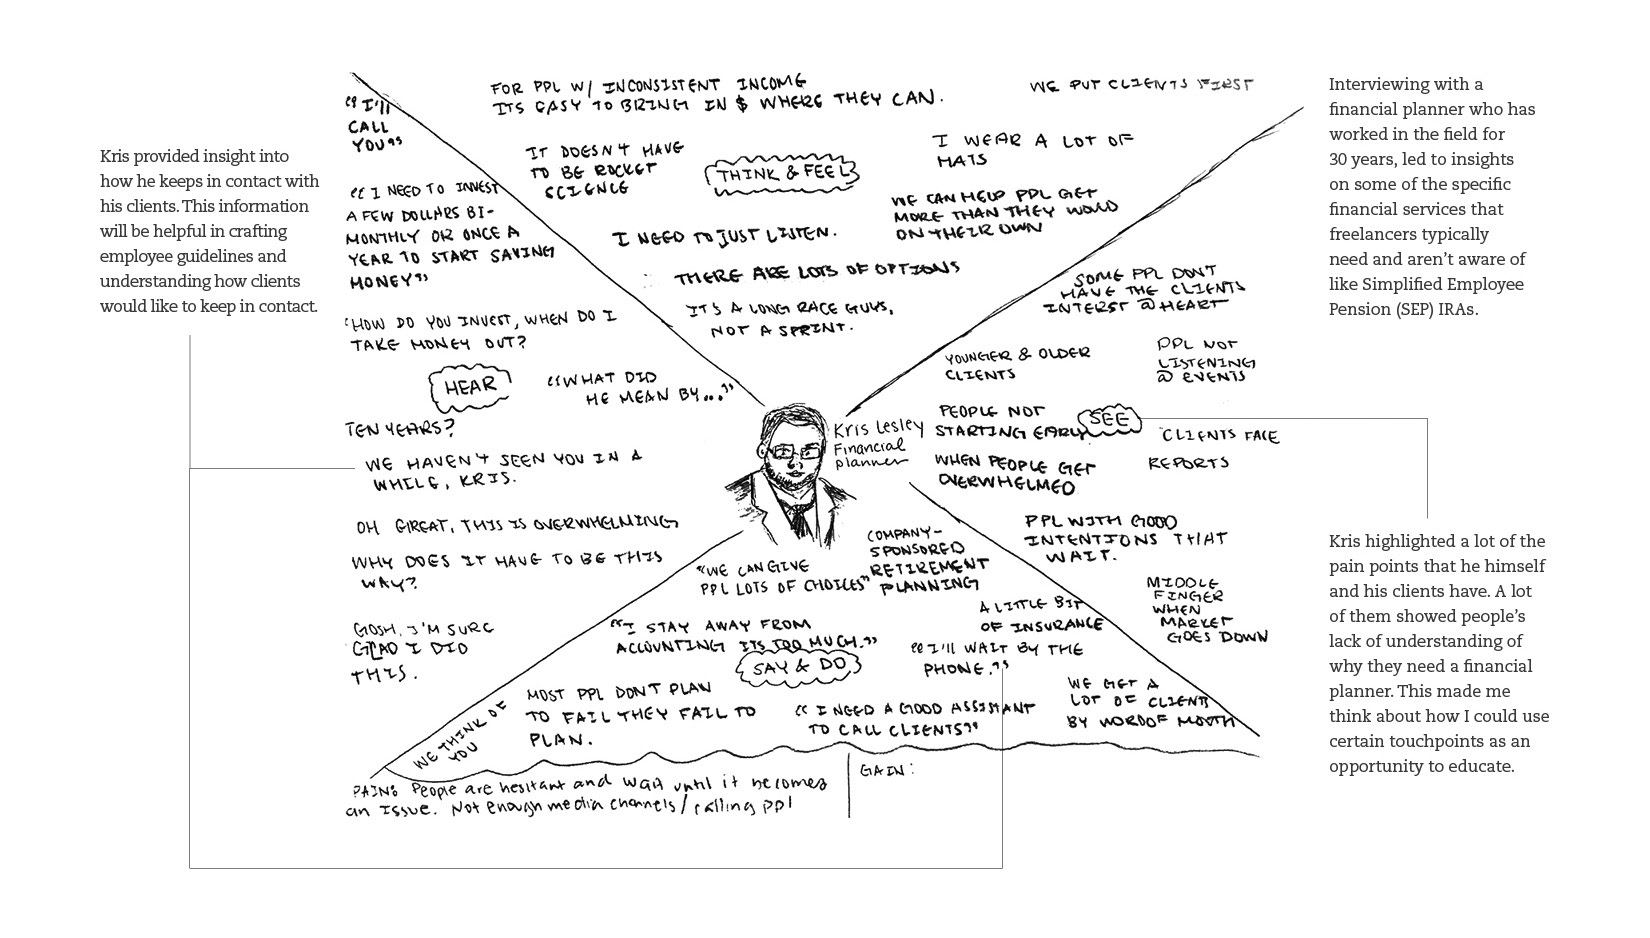 Kris provided insight into
how he keeps in contact with
his clients. This information
will be helpful in crafting
employee guidelines and
understanding how clients
would like to keep in contact.
FOR PPL W/ INCONSISTENT INCOME
ITS EASY TO BRING IN $ WHERE THEY CAN.
WE PUT CLIENTS FIRST
IT DOESN'T HAVE
TO BE ROCKET
SCIENCE
THINK & FEEL
I WEAR A LOT OF
HATS
WE CAN HELP PPL GET
MORE THAN THEY WOULD
ON THEIR OWN
I NEED TO JUST LISTEN.
THERE ARE LOTS OF OPTIONS
IT'S A LONG RACE GUYS,
NOT A SPRINT.
"I'll
CALL
YOU"
"I NEED TO INVEST
A FEW DOLLARS BI-
MONTHLY OR ONCE A
YEAR TO START SAVING
MONEY"
'HOW DO YOU INVEST, WHEN DO I
TAKE MONEY OUT?
HEAR
"WHAT DID
HE MEAN BY..."
TEN YEARS?
WE HAVEN'T SEEN YOU IN A
WHILE, KRIS.
OH GREAT, THIS IS OVERWHELMING
WHY DOES IT HAVE TO BE THIS
WAY?
GOSH, I'M SURE
GLAD I DID
THIS.
Kris Lesley
Financial
planner
SOME PPL DON'T
HAVE THE CLIENTS
INTERST @ HEART
YOUNGER & OLDER
CLIENTS
PPL NOT
LISTENING
@ EVENTS
PEOPLE NOT
STARTING EARLY
SEE
CLIENTS FACE
REPORTS
WHEN PEOPLE GET
OVERWHELMED
PPL WITH GOOD
INTENTIONS THAT
WAIT.
MIDDLE
FINGER
WHEN
MARKET
GOES DOWN
"WE CAN GIVE
PPL LOTS OF CHOICES"
COMPANY-
SPONSORED
RETIREMENT
PLANNING
A LITTLE BIT
OF INSURANCE
"I STAY AWAY FROM
ACCOUNTING ITS TOO MUCH."
SAY & DO
"I'll WAIT BY THE
PHONE."
WE THINK OF
YOU
MOST PPL DON'T PLAN
TO FAIL THEY FAIL TO
PLAN.
"I NEED A GOOD ASSISTANT
TO CALL CLIENTS"
WE GET A
LOT OF CLIENTS
BY WORD OF MOUTH
PAIN: People are hesitant and wait until it becomes
an Issue. Not enough media channels / calling ppl
GAIN:
Interviewing with a
financial planner who has
worked in the field for
30 years, led to insights
on some of the specific
financial services that
freelancers typically
need and aren't aware of
like Simplified Employee
Pension (SEP) IRAs.
Kris highlighted a lot of the
pain points that he himself
and his clients have. A lot
of them showed people's
lack of understanding of
why they need a financial
planner. This made me
think about how I could use
certain touchpoints as an
opportunity to educate.